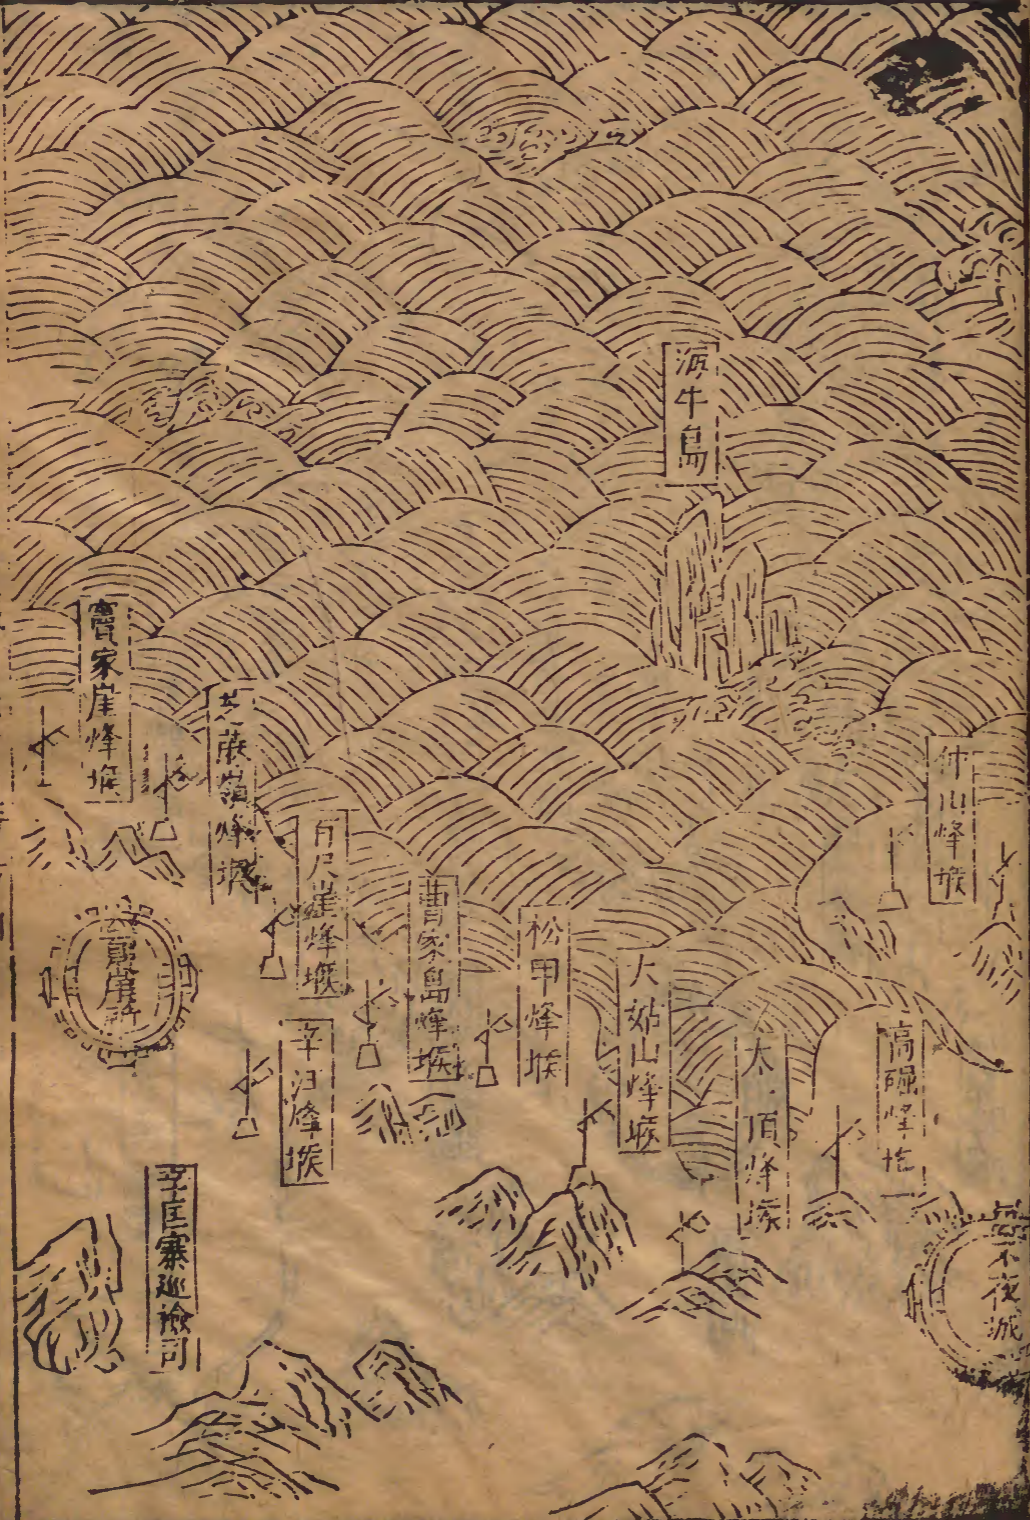 海牛島
仲山烽堠
高礓烽堠
不夜城
太頂烽堠
大姑山烽堠
松甲烽堠
曹家島烽堠
百尺崖烽堠
辛汪烽堠
芝蔴嶺烽堠
竇家崖烽堠
百尺崖所
辛汪寨巡檢司